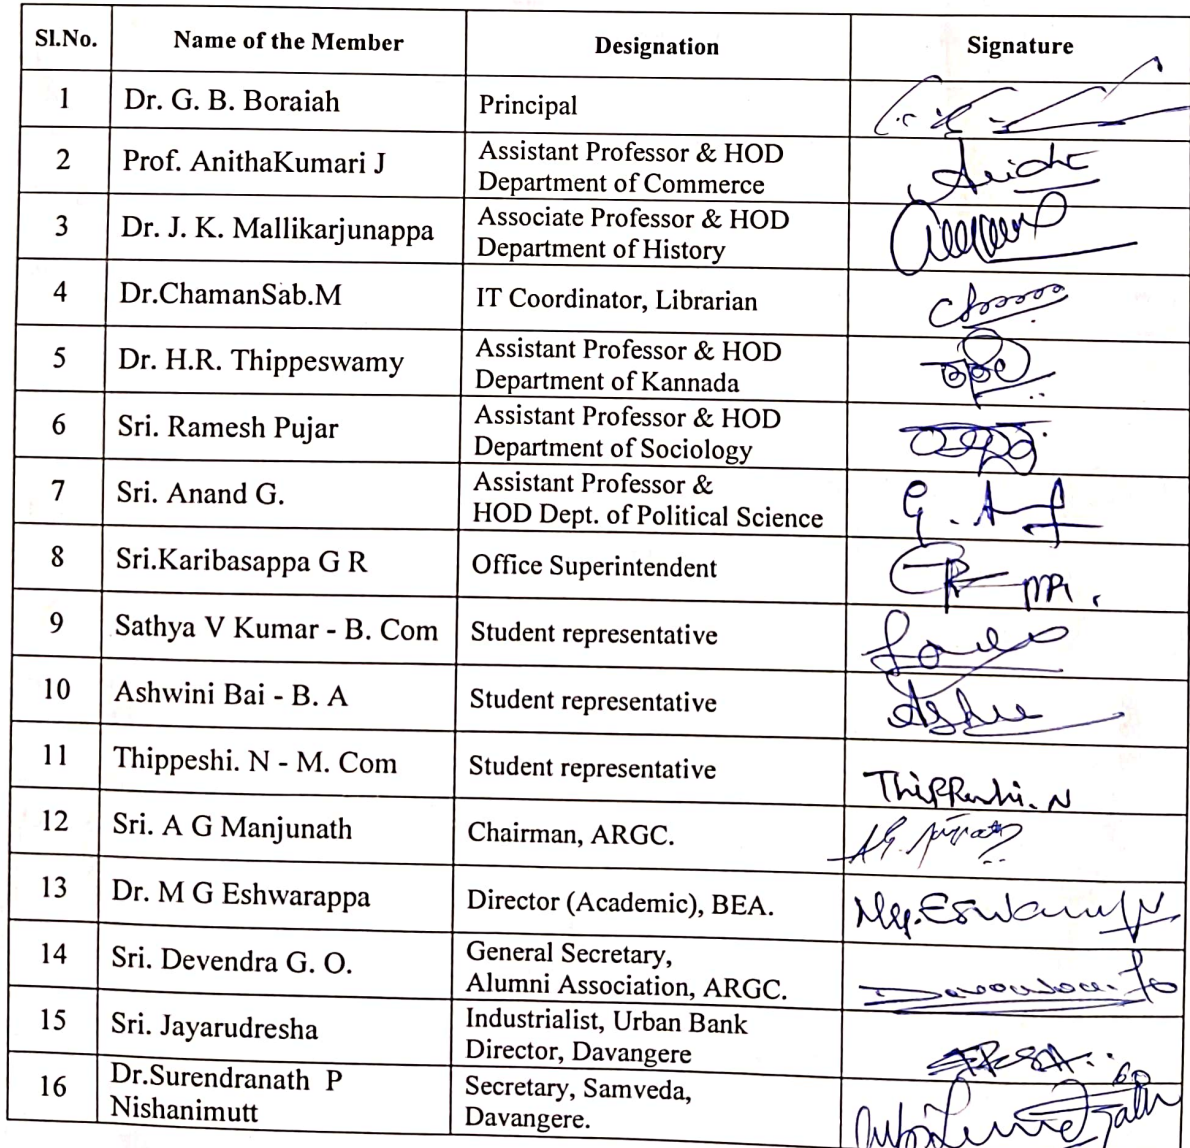 Sl.No. Name of the Member Designation Signature
1 Dr. G. B. Boraiah Principal
2 Prof. AnithaKumari J Assistant Professor & HOD
Department of Commerce
3 Dr. J. K. Mallikarjunappa Associate Professor & HOD
Department of History
4 Dr.ChamanSab.M IT Coordinator, Librarian
5 Dr. H.R. Thippeswamy Assistant Professor & HOD
Department of Kannada
6 Sri. Ramesh Pujar Assistant Professor & HOD
Department of Sociology
7 Sri. Anand G. Assistant Professor &
HOD Dept. of Political Science
8 Sri.Karibasappa G R Office Superintendent
9 Sathya V Kumar - B. Com Student representative
10 Ashwini Bai - B. A Student representative
11 Thippeshi. N - M. Com Student representative
Thippeshi. N
12 Sri. A G Manjunath Chairman, ARGC.
13 Dr. M G Eshwarappa Director (Academic), BEA.
14 Sri. Devendra G. O. General Secretary,
Alumni Association, ARGC.
15 Sri. Jayarudresha Industrialist, Urban Bank
Director, Davangere
16 Dr.Surendranath P Secretary, Samveda,
Nishanimutt Davangere.